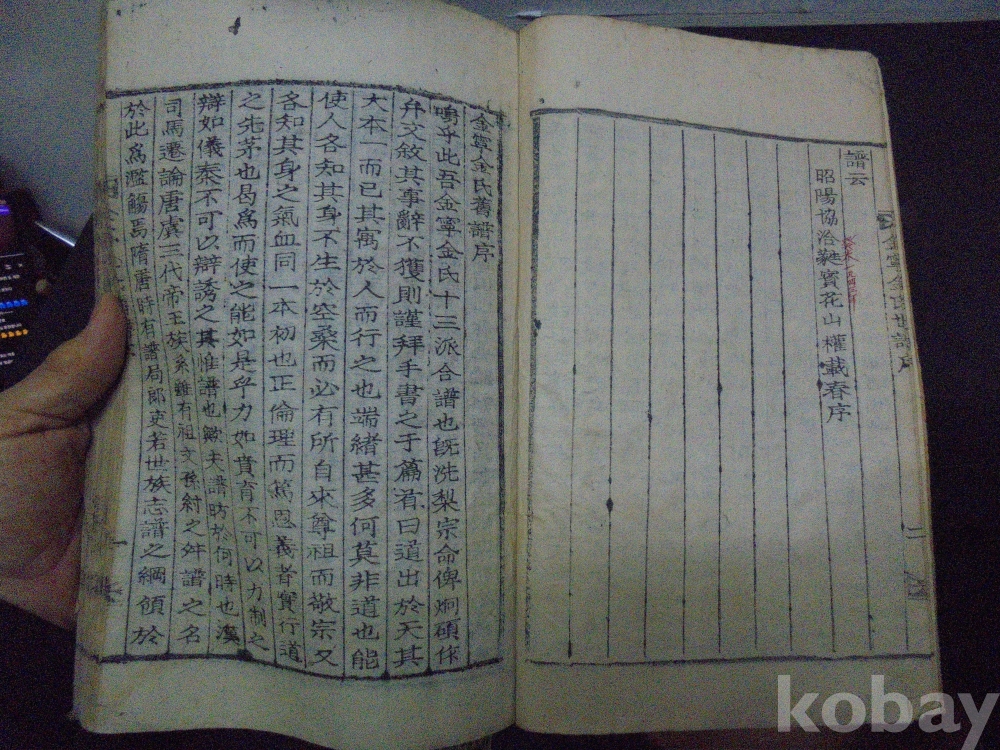 金寧金氏世譜序
二
譜云
昭陽協洽蕤賓花山權載春序
金寧金氏舊譜序
嗚乎此吾金寧金氏十三派合譜也旣洗梨宗命俾炯碩作
弁文敘其事辭不獲則謹拜手書之于篇首曰道出於天其
大本一而已其寓於人而行之也端緖甚多何莫非道也能
使人各知其身不生於空桑而必有所自來尊祖而敬宗又
各知其身之氣血同一本初也正倫理而篤恩義者實行道
之先茅也曷爲而使之能如是乎力如賁育不可以力制之
辯如儀泰不可以辯誘之其惟譜也歟夫譜昉於何時也漢
司馬遷論唐虞三代帝王族系雖有祖文孫紂之舛譜之名
於此爲濫觴焉隋唐時有譜局郞吏若世族志譜之綱領於
kobay